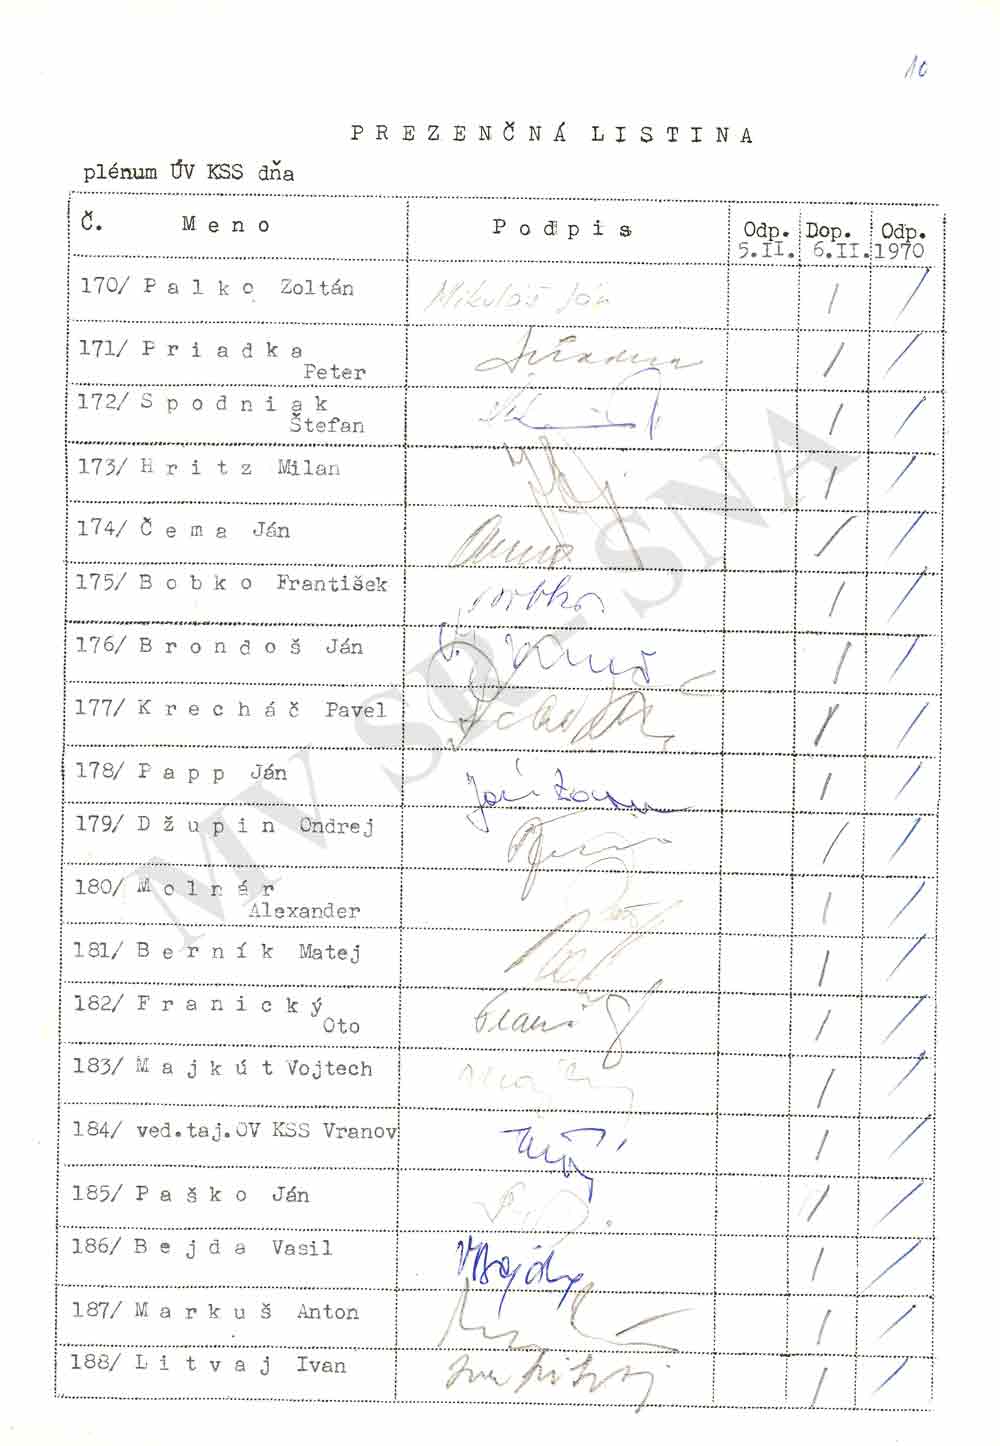 10
PREZENČNÁ LISTINA
plénum ÚV KSS dňa
Č. Meno Podpis Odp. Dop. Odp.
5.II. 6.II. 1970
170/ Palko Zoltán Mikuláš Ján / /
171/ Priadka / /
Peter
172/ Spodniak / /
Štefan
173/ Hritz Milan / /
174/ Čema Ján / /
175/ Bobko František Bobko / /
176/ Brondoš Ján / /
177/ Krecháč Pavel / /
178/ Papp Ján / /
179/ Džupin Ondrej / /
180/ Molnár / /
Alexander
181/ Berník Matej / /
182/ Franický / /
Oto
183/ Majkút Vojtech / /
184/ ved.taj.OV KSS Vranov / /
185/ Paško Ján / /
186/ Bejda Vasil VBejda / /
187/ Markuš Anton / /
188/ Litvaj Ivan Ivan Litvaj / /
MV SR - SNA